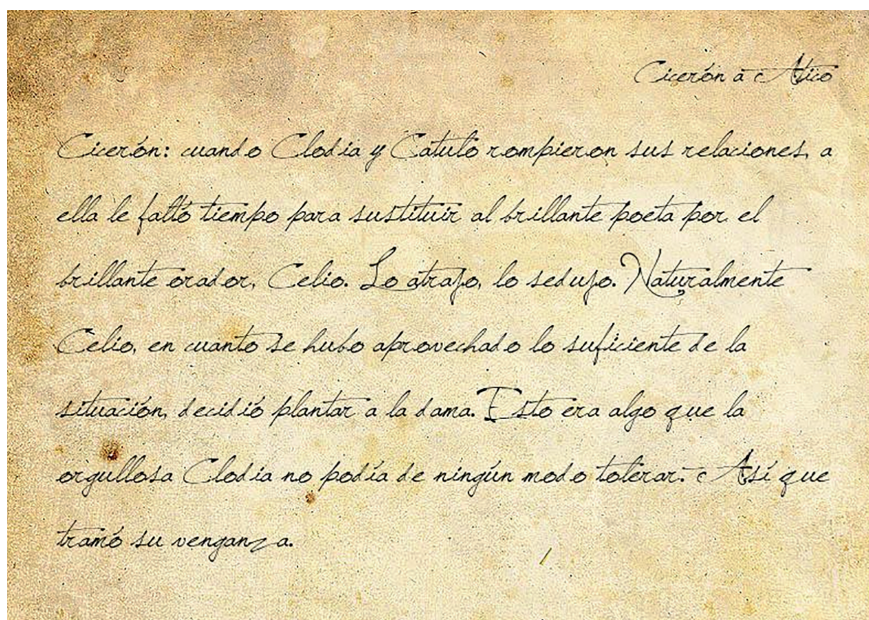 Cicerón a Ático
Cicerón: cuando Clodia y Catulo rompieron sus relaciones, a
ella le faltó tiempo para sustituir al brillante poeta por el
brillante orador, Celio. Lo atrajo, lo sedujo. Naturalmente
Celio, en cuanto se hubo aprovechado lo suficiente de la
situación, decidió plantar a la dama. Esto era algo que la
orgullosa Clodia no podía de ningún modo tolerar. Así que
tramó su venganza.